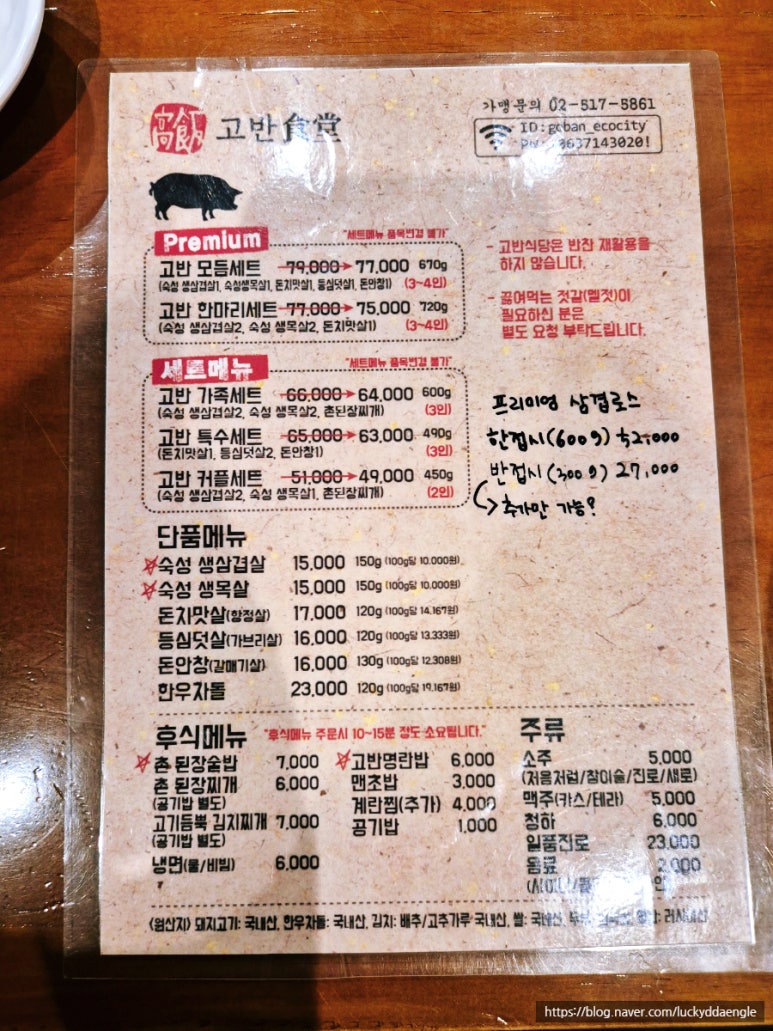 高飯 고반食堂
가맹문의 02-517-5861
ID:goban_ecocity
0637143020!
Premium
"세트메뉴 품목변경 불가"
고반 모듬세트 79,000 → 77,000 670g
(숙성 생삼겹살1, 숙성생목살1, 돈치맛살1, 등심덧살1, 돈안창1) (3~4인)
고반 한마리세트 77,000 → 75,000 720g
(숙성 생삼겹살2, 숙성 생목살2, 돈치맛살1) (3~4인)
- 고반식당은 반찬 재활용을
하지 않습니다.
- 끓여먹는 젓갈(멜젓)이
필요하신 분은
별도 요청 부탁드립니다.
세트메뉴
"세트메뉴 품목변경 불가"
고반 가족세트 66,000 → 64,000 600g
(숙성 생삼겹살2, 숙성 생목살2, 촌된장찌개) (3인)
고반 특수세트 65,000 → 63,000 490g
(돈치맛살1, 등심덧살2, 돈안창1) (3인)
고반 커플세트 51,000 → 49,000 450g
(숙성 생삼겹살2, 숙성 생목살1, 촌된장찌개) (2인)
프리미엄 삼겹로스
한접시(600g) 52,000
반접시(300g) 27,000
추가만 가능?
단품메뉴
☆숙성 생삼겹살 15,000 150g (100g당 10.000원)
☆숙성 생목살 15,000 150g (100g당 10.000원)
돈치맛살(항정살) 17,000 120g (100g당 14.167원)
등심덧살(가브리살) 16,000 120g (100g당 13.333원)
돈안창(갈매기살) 16,000 130g (100g당 12.308원)
한우차돌 23,000 120g (100g당 19.167원)
후식메뉴 "후식메뉴 주문시 10~15분 정도 소요됩니다."
☆촌 된장술밥 7,000
촌 된장찌개 6,000
(공기밥 별도)
고기듬뿍 김치찌개 7,000
(공기밥 별도)
냉면(물/비빔) 6,000
☆고반명란밥 6,000
맨초밥 3,000
계란찜(추가) 4,000
공기밥 1,000
주류
소주 5,000
(처음처럼/참이슬/진로/새로)
맥주(카스/테라) 5,000
청하 6,000
일품진로 23,000
음료 2,000
〈원산지〉 돼지고기: 국내산, 한우차돌: 국내산, 김치: 배추/고추가루 국내산, 쌀: 국내산, 러시아산
https://blog.naver.com/luckyddaengle